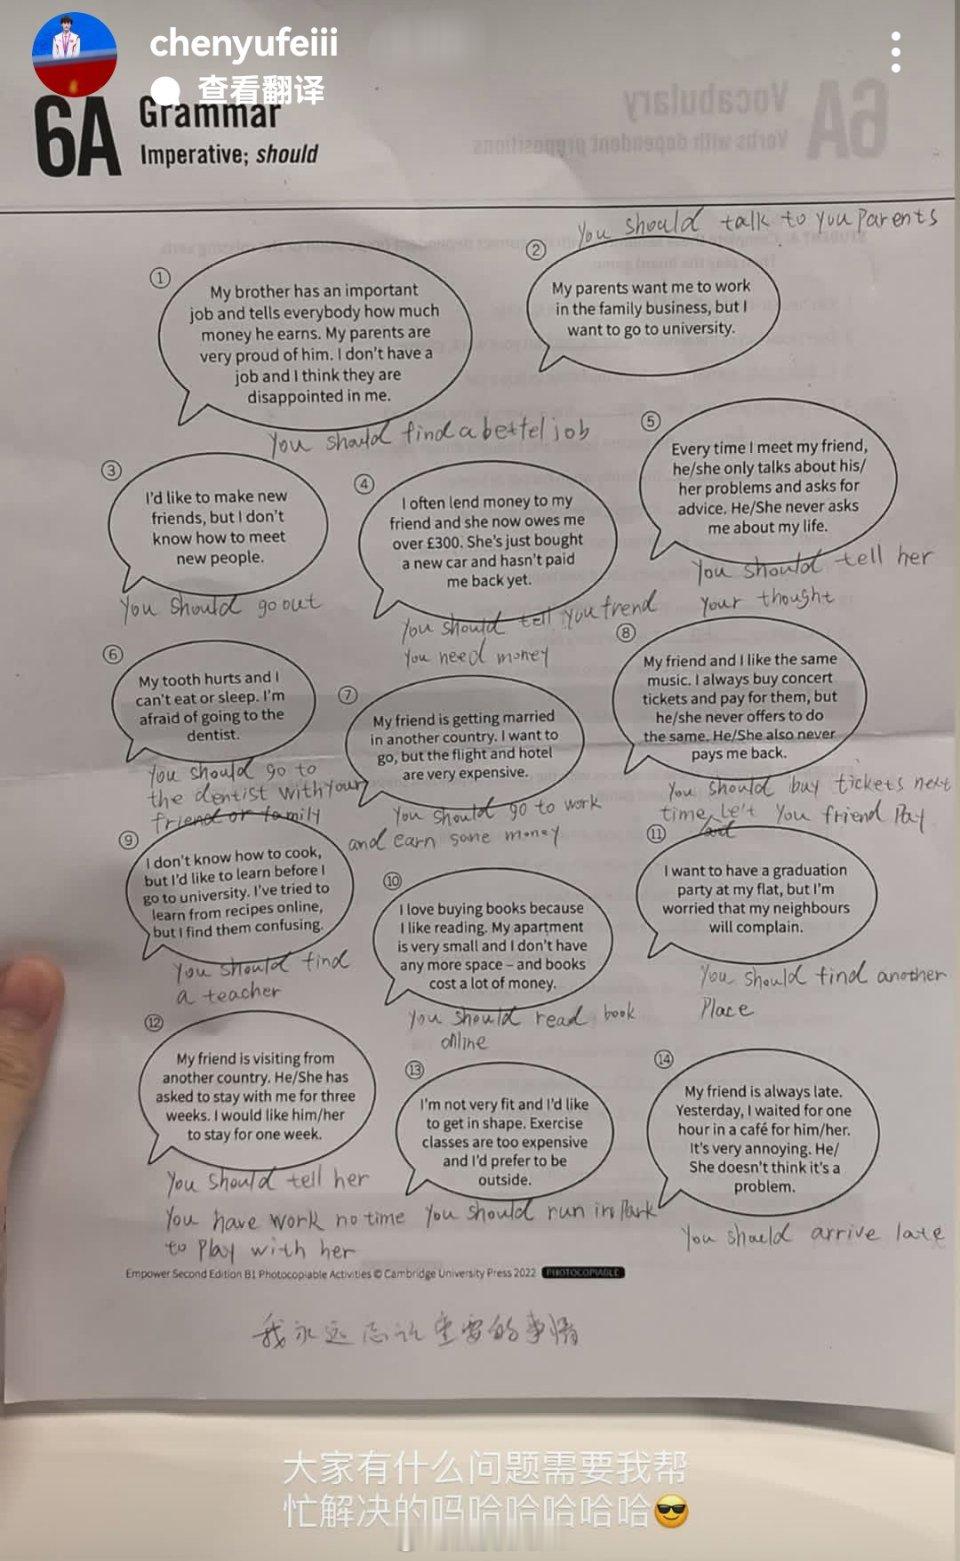 chenyufeiii
查看翻译
6A
Grammar
Imperative; should
6A
Vocabulary
Verbs with dependent prepositions
You should talk to you parents
①
My brother has an important
job and tells everybody how much
money he earns. My parents are
very proud of him. I don't have a
job and I think they are
disappointed in me.
You should find a bettel job
②
My parents want me to work
in the family business, but I
want to go to university.
③
I'd like to make new
friends, but I don't
know how to meet
new people.
You should go out
④
I often lend money to my
friend and she now owes me
over £300. She's just bought
a new car and hasn't paid
me back yet.
You should tell you frend
you need money
⑤
Every time I meet my friend,
he/she only talks about his/
her problems and asks for
advice. He/She never asks
me about my life.
You should tell her
your thought
⑥
My tooth hurts and I
can't eat or sleep. I'm
afraid of going to the
dentist.
You should go to
the dentist with your
friend or family
⑦
My friend is getting married
in another country. I want to
go, but the flight and hotel
are very expensive.
You should go to work
and earn some money
⑧
My friend and I like the same
music. I always buy concert
tickets and pay for them, but
he/she never offers to do
the same. He/She also never
pays me back.
You should buy tickets next
time, let you friend pay
⑨
I don't know how to cook,
but I'd like to learn before I
go to university. I've tried to
learn from recipes online,
but I find them confusing.
You should find
a teacher
⑩
I love buying books because
I like reading. My apartment
is very small and I don't have
any more space – and books
cost a lot of money.
You should read book
online
⑪
I want to have a graduation
party at my flat, but I'm
worried that my neighbours
will complain.
You should find another
place
⑫
My friend is visiting from
another country. He/She has
asked to stay with me for three
weeks. I would like him/her
to stay for one week.
You should tell her
you have work no time
to play with her
⑬
I'm not very fit and I'd like
to get in shape. Exercise
classes are too expensive
and I'd prefer to be
outside.
You should run in park
⑭
My friend is always late.
Yesterday, I waited for one
hour in a café for him/her.
It's very annoying. He/
She doesn't think it's a
problem.
You should arrive late
Empower Second Edition B1 Photocopiable Activities © Cambridge University Press 2022 PHOTOCOPIABLE
我永远忘记重要的事情
大家有什么问题需要我帮
忙解决的吗哈哈哈哈哈😎